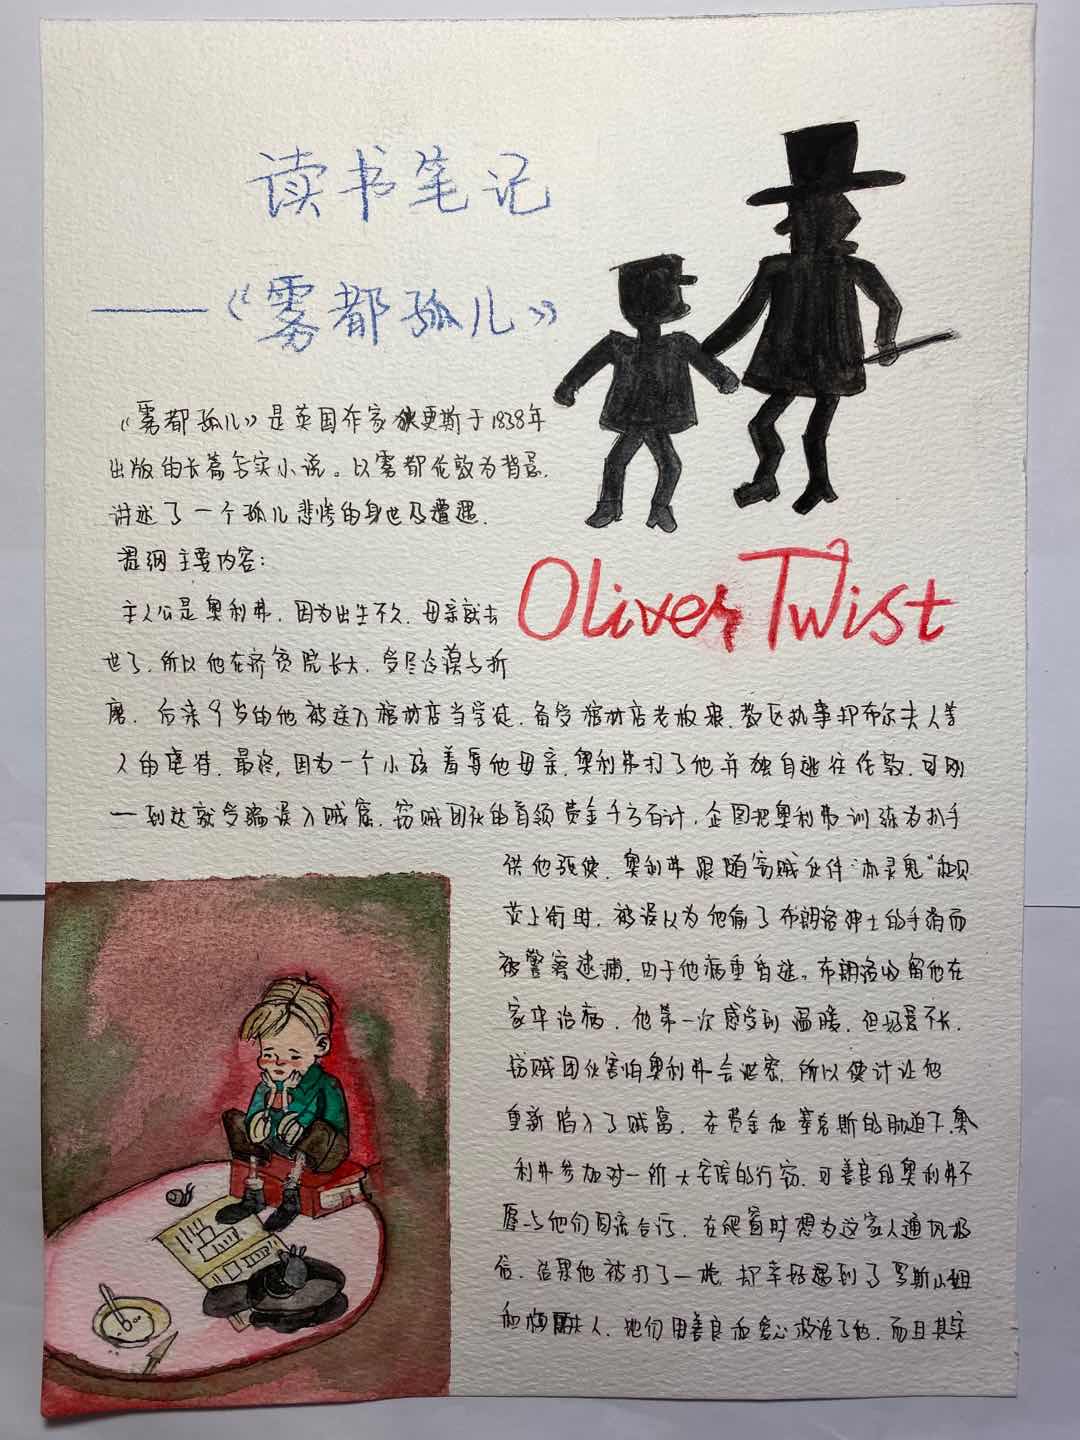 读书笔记
——《雾都孤儿》
《雾都孤儿》是英国作家狄更斯于1838年
出版的长篇写实小说。以雾都伦敦为背景,
讲述了一个孤儿悲惨的身世及遭遇.
Oliver Twist
提纲主要内容:
主人公是奥利弗.因为出生不久.母亲就去
世了.所以他在济贫院长大.受尽冷漠与折
磨.后来9岁的他被送入棺材店当学徒.备受棺材店老板娘.教区执事邦布尔夫人等
人的虐待.最终,因为一个小孩羞辱他母亲.奥利弗打了他并独自逃往伦敦.可刚
一到达就受骗误入贼窟.窃贼团伙的首领费金千方百计,企图把奥利弗训练为扒手
供他驱使.奥利弗跟随窃贼伙伴“机灵鬼”和贝
茨上街时.被误以为他偷了布朗洛绅士的手绢而
被警察逮捕.由于他病重昏迷。布朗洛收留他在
家中治病.他第一次感受到温暖.但好景不长.
窃贼团伙害怕奥利弗会泄密.所以使计让他
重新陷入了贼窝.在费金和塞克斯的胁迫下.奥
利弗参加对一所大宅院的行窃.可善良的奥利弗不
愿与他们同流合污.在爬窗时想为这家人通风报
信.结果他被打了一枪.却幸好遇到了罗斯小姐
和 夫人.她们用善良和爱心救活了他.而且其实